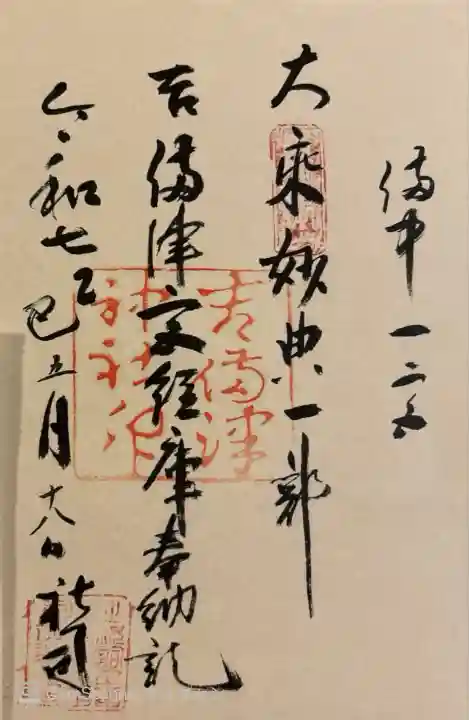 備中一
大乗妙典一部
吉備津宮經庫奉納記
令和七乙巳五月十八日 社司
吉備津
神社之印